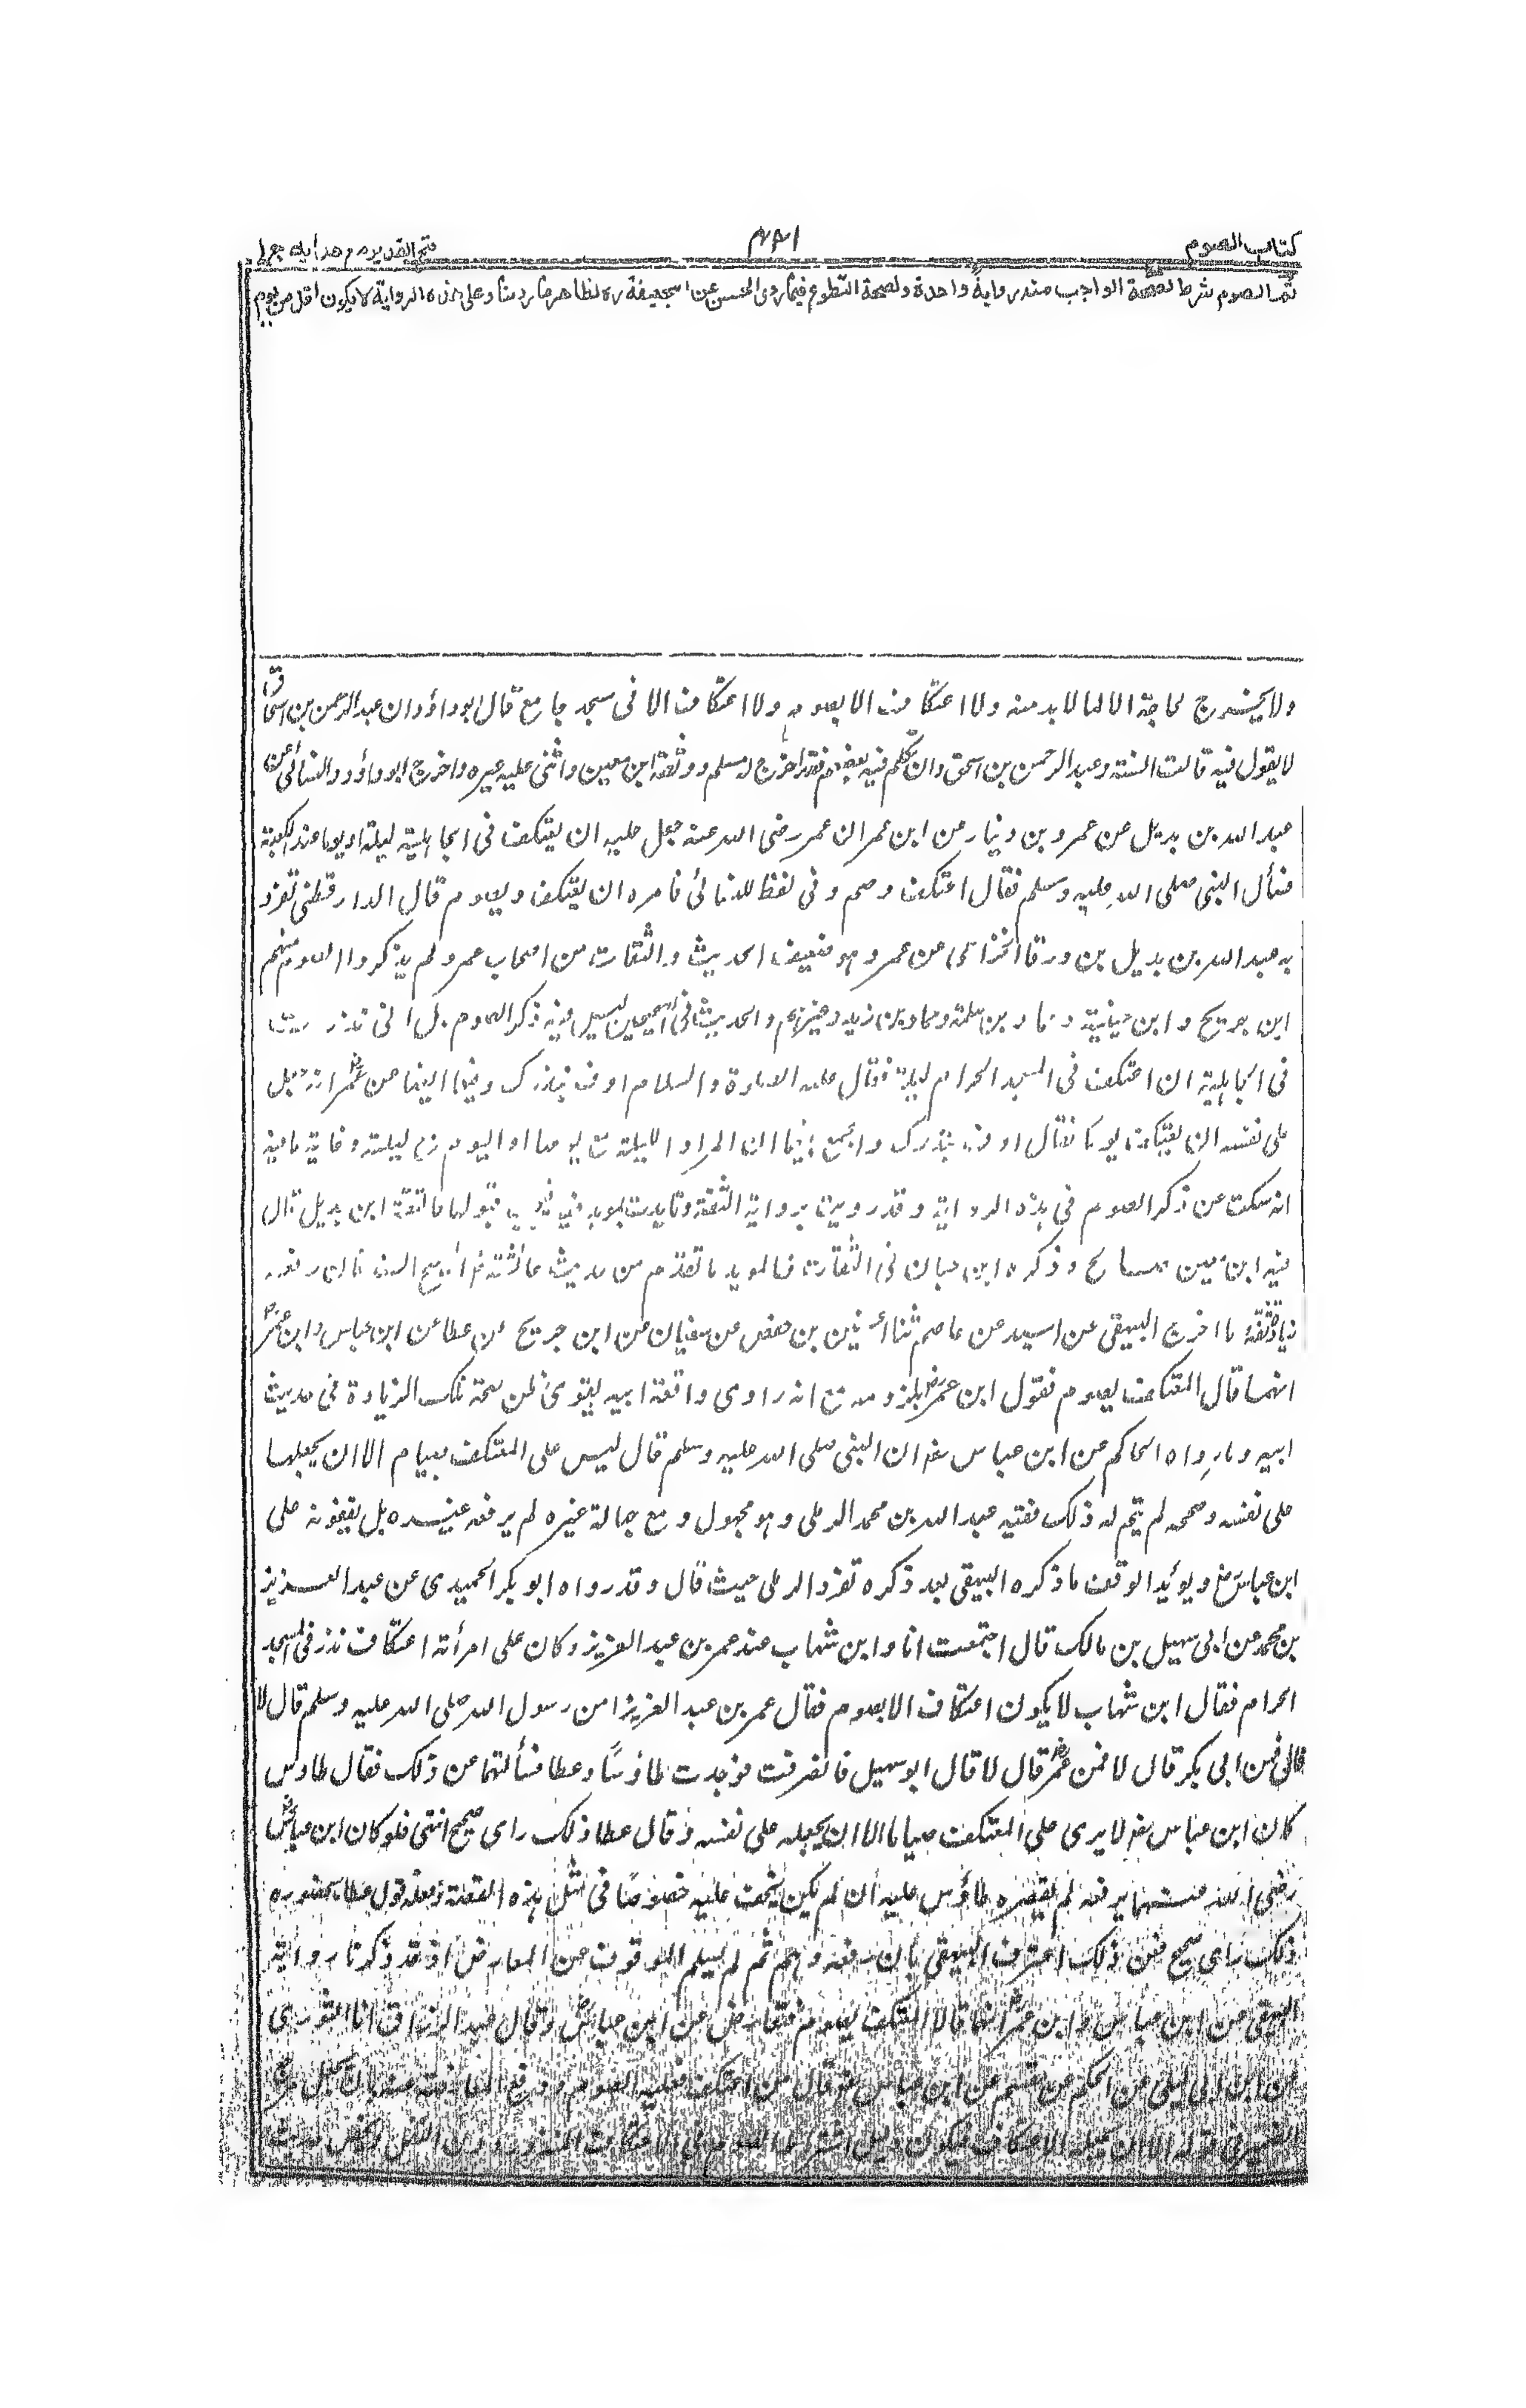 كتاب الصوم
٤٣١
فتح القدير مع هدايه ج ١
ثم الصوم شرط لصحة الواجب منه رواية واحدة ولصحة التطوع فيما روى الحسن عن ابيحنيفة ره لظاهر ما روينا وعلى هذه الرواية لا يكون اقل من يوم
ولا يخرج لحاجة الا لما لا بد منه ولا اعتكاف الا بصوم ولا اعتكاف الا فى مسجد جامع قال ابو داؤد ان عبد الرحمن بن اسحاق
لا يقول فيه قالت السنة وعبد الرحمن بن اسحق وان تكلم فيه بعضهم فقد اخرج له مسلم ووثقة ابن معين واثنى عليه غيره واخرج ابو داؤد والنسائى عن
عبد الله بن بديل عن عمرو بن دينار عن ابن عمر ان عمر رضى الله عنه جعل عليه ان يعتكف فى الجاهلية ليلة او يوما عند الكعبة
فسأل النبى صلى الله عليه وسلم فقال اعتكف وصم وفى لفظ للنسائى فامره ان يعتكف ويصوم قال الدارقطنى تفرد
به عبد الله بن بديل بن ورقا الخزاعى عن عمرو وهو ضعيف الحديث والثقات من اصحاب عمرو لم يذكروا الصوم منهم
ابن جريج وابن عيينة وحماد بن سلمة وحماد بن زيد وغيرهم والحديث فى الصحيحين ليس فيه ذكر الصوم بل انى نذرت
فى الجاهلية ان اعتكف فى المسجد الحرام ليلة فقال عليه الصلوة والسلام اوف بنذرك وفيهما ايضا عن عمر انه جعل
على نفسه ان يعتكف يوما فقال اوف بنذرك والجمع بينهما ان المراد الليلة مع يومها او اليوم مع ليلته وغاية ما فيه
انه سكت عن ذكر الصوم فى هذه الرواية وقد رويت برواية الثقة وتايدت بمويد فيجب قبولها فالثقة ابن بديل قال
فيه ابن معين صالح وذكره ابن حبان فى الثقات فالمويد ما تقدم من حديث عائشة
زيادة ثقة ما اخرج البيهقى عن اسيد عن عاصم ثنا الحسين بن حفص عن سفيان عن ابن جريج عن عطا عن ابن عباس وابن عمر
انهما قال المعتكف يصوم فقول ابن عمر بلزومه مع انه راوى واقعة ابيه يقوى ظن صحة تلك الزيادة فى حديث
ابيه وما رواه الحاكم عن ابن عباس رض ان النبى صلى الله عليه وسلم قال ليس على المعتكف صيام الا ان يجعلها
على نفسه وصححه لم يتم له ذلك ففيه عبد الله بن محمد الرملى وهو مجهول ومع جهالة غيره لم يرفعه غيره بل يقفونه على
ابن عباس رض ويوئيد الوقف ما ذكره البيهقى بعد ذكره تفرد الرملى حيث قال وقد رواه ابو بكر الحميدى عن عبد العزيز
بن محمد عن ابى سهيل بن مالك قال اجتمعت انا وابن شهاب عند عمر بن عبد العزيز وكان على امرأته اعتكاف نذر فى المسجد
الحرام فقال ابن شهاب لا يكون اعتكاف الا بصوم فقال عمر بن عبد العزيز امن رسول الله صلى الله عليه وسلم قال لا
قال فمن ابى بكر قال لا فمن عمر قال لا قال ابو سهيل فانصرفت فوجدت طاؤسا وعطا فسألتهما عن ذلك فقال طاوس
كان ابن عباس رض لا يرى على المعتكف صياما الا ان يجعله على نفسه وقال عطا ذلك راى صحيح انتهى فلو كان ابن عباس
رضى الله عنهما يرفعه لم يقصره طاؤس عليه ان لم يكن يخف عليه خصوصا فى مثل هذه القصة وبعده قول عطا بحضوره
ذلك راى صحيح فعن ذلك اعترف البيهقى بان رفعه وهم ثم لم يسلم الموقوف عن المعارض اذ قد ذكرنا رواية
البيهقى عن ابن عباس وابن عمر انهما قالا المعتكف يصوم فتعارض عن ابن عباس وقال عبد الرزاق انا الثورى
عن ابن ابى ليلى عن الحكم عن مقسم عن ابن عباس رض قال من اعتكف فعليه الصوم